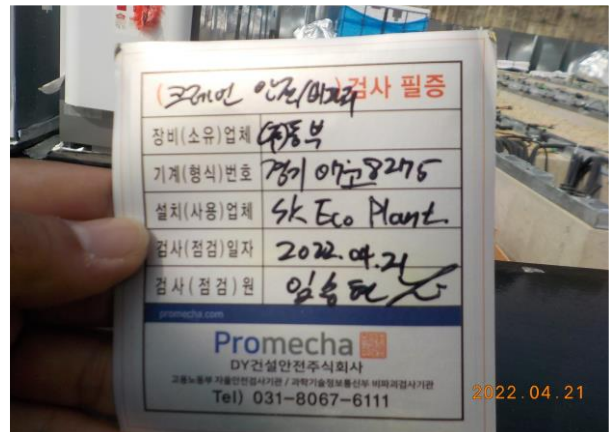 (크레인 안전/비파괴)검사 필증
장비(소유)업체 (주)동부
기계(형식)번호 경기 07 8275
설치(사용)업체 SK Eco Plant.
검사(점검)일자 2022.04.21
검사(점검)원
promecha.com
Promecha
DY건설안전주식회사
고용노동부 자율안전검사기관 / 과학기술정보통신부 비파괴검사기관
Tel) 031-8067-6111
2022.04.21